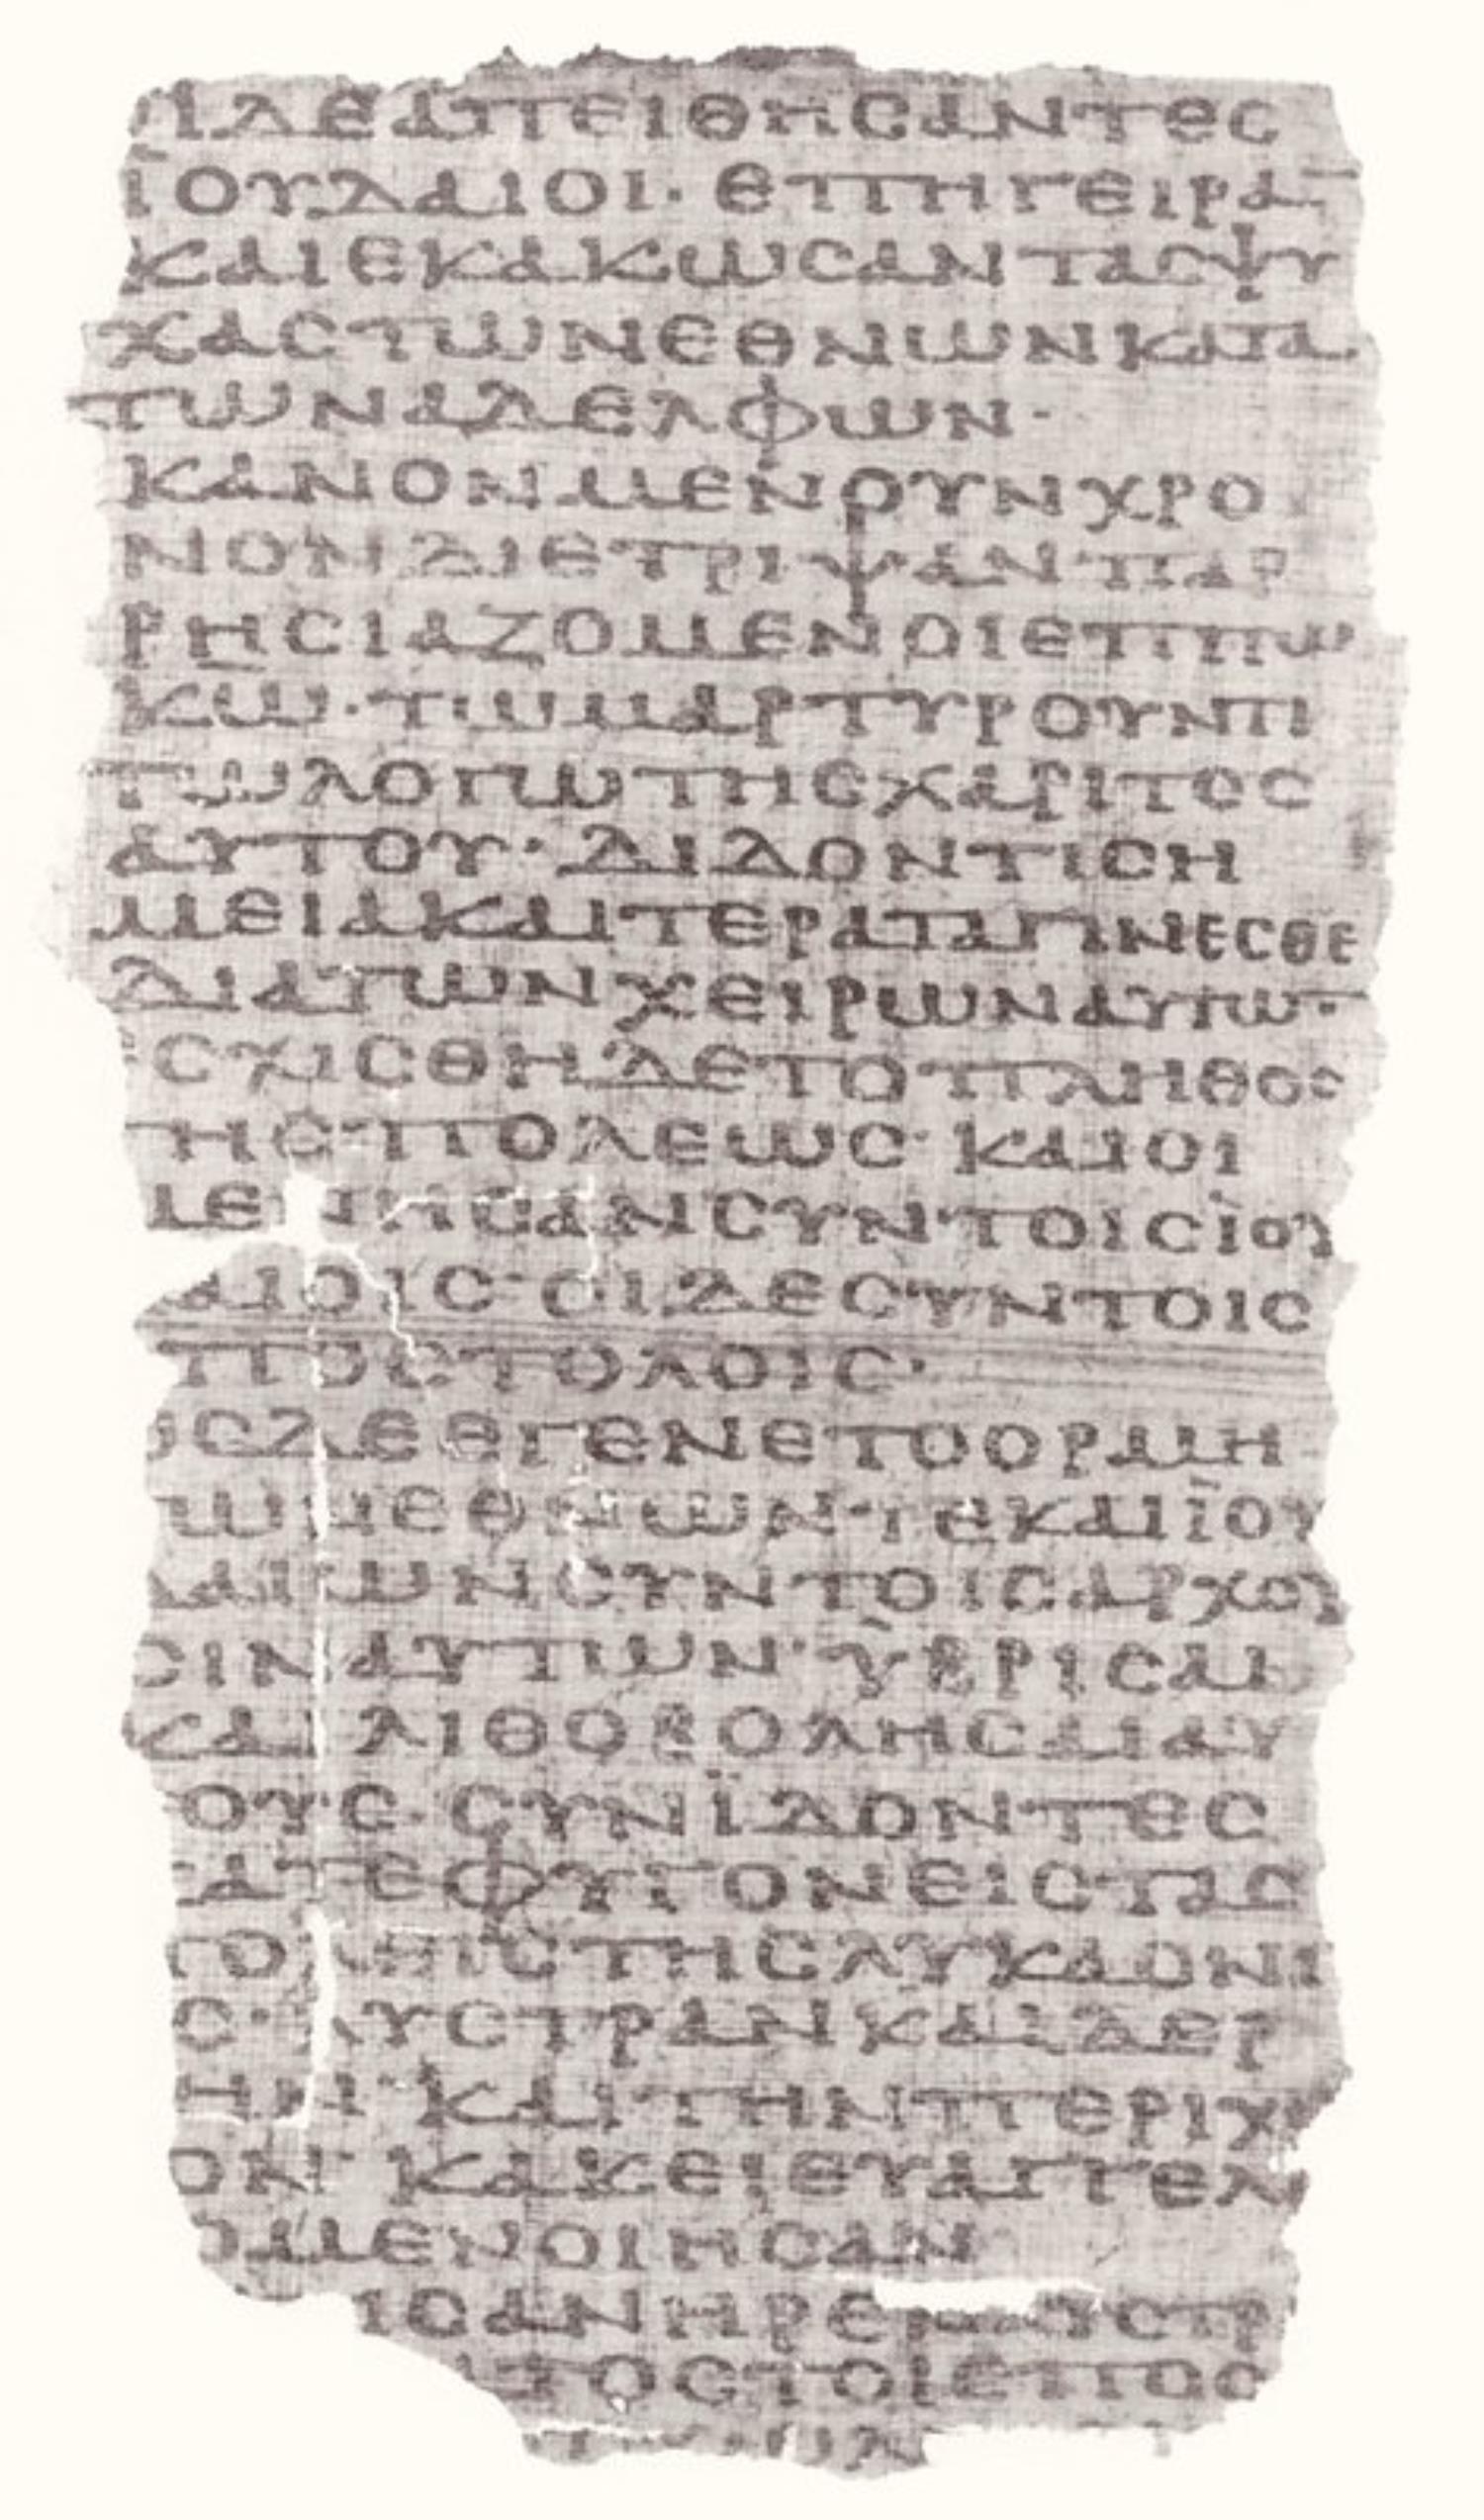 ΙΔΕΑΠΕΙΘΗCΑΝΤΕC
ΪΟΥΔΑΙΟΙ· ΕΠΗΓΕΙΡΑ̅
ΚΑΙΕΚΑΚΩCΑΝΤΑCΨΥ
ΧΑCΤΩΝΕΘΝΩΝΚΑΤΑ
ΤΩΝΑΔΕΛΦΩΝ·
ΚΑΝΟΝΜΕΝΟΥΝΧΡΟ
ΝΟΝΔΙΕΤΡΙΨΑΝΠΑΡ
ΡΗCΙΑΖΟΜΕΝΟΙΕΠΙΤΩ
ΚΩ·ΤΩΜΑΡΤΥΡΟΥΝΤΙ
ΤΩΛΟΓΩΤΗCΧΑΡΙΤΟC
ΑΥΤΟΥ·ΔΙΔΟΝΤΙCΗ
ΜΕΙΑΚΑΙΤΕΡΑΤΑΓΙΝΕCΘΕ
ΔΙΑΤΩΝΧΕΙΡΩΝΑΥΤΩ̅·
ΕCΧΙCΘΗΔΕΤΟΠΛΗΘΟC
ΤΗCΠΟΛΕΩC· ΚΑΙΟΙ
ΜΕΝΗCΑΝCΥΝΤΟΙCΪΟΥ
ΔΑΙΟΙC· ΟΙΔΕCΥΝΤΟΙC
ΠΟCΤΟΛΟΙC·
ΩCΔΕΕΓΕΝΕΤΟΟΡΜΗ
ΤΩΝΕΘΝΩΝΤΕΚΑΙΪΟΥ
ΔΑΙΩΝCΥΝΤΟΙCΑΡΧΟΥ
CΙΝΑΥΤΩΝ·ΫΒΡΙCΑΙ
ΚΑΙΛΙΘΟΒΟΛΗCΑΙΑΥ
ΟΥC· CΥΝΪΔΟΝΤΕC
ΚΑΤΕΦΥΓΟΝΕΙCΤΑC
ΠΟΛΕΙCΤΗCΛΥΚΑΟΝΙ
C· ΛΥCΤΡΑΝΚΑΙΔΕΡ
ΗΝ ΚΑΙΤΗΝΠΕΡΙΧΩ
ΟΝ· ΚΑΚΕΙΕΥΑΓΓΕΛΙ
ΟΜΕΝΟΙΗCΑΝ
ΙCΑΝΗΡΕΝΛΥCΤΡ
ΑΤΟCΤΟΙCΠΟC